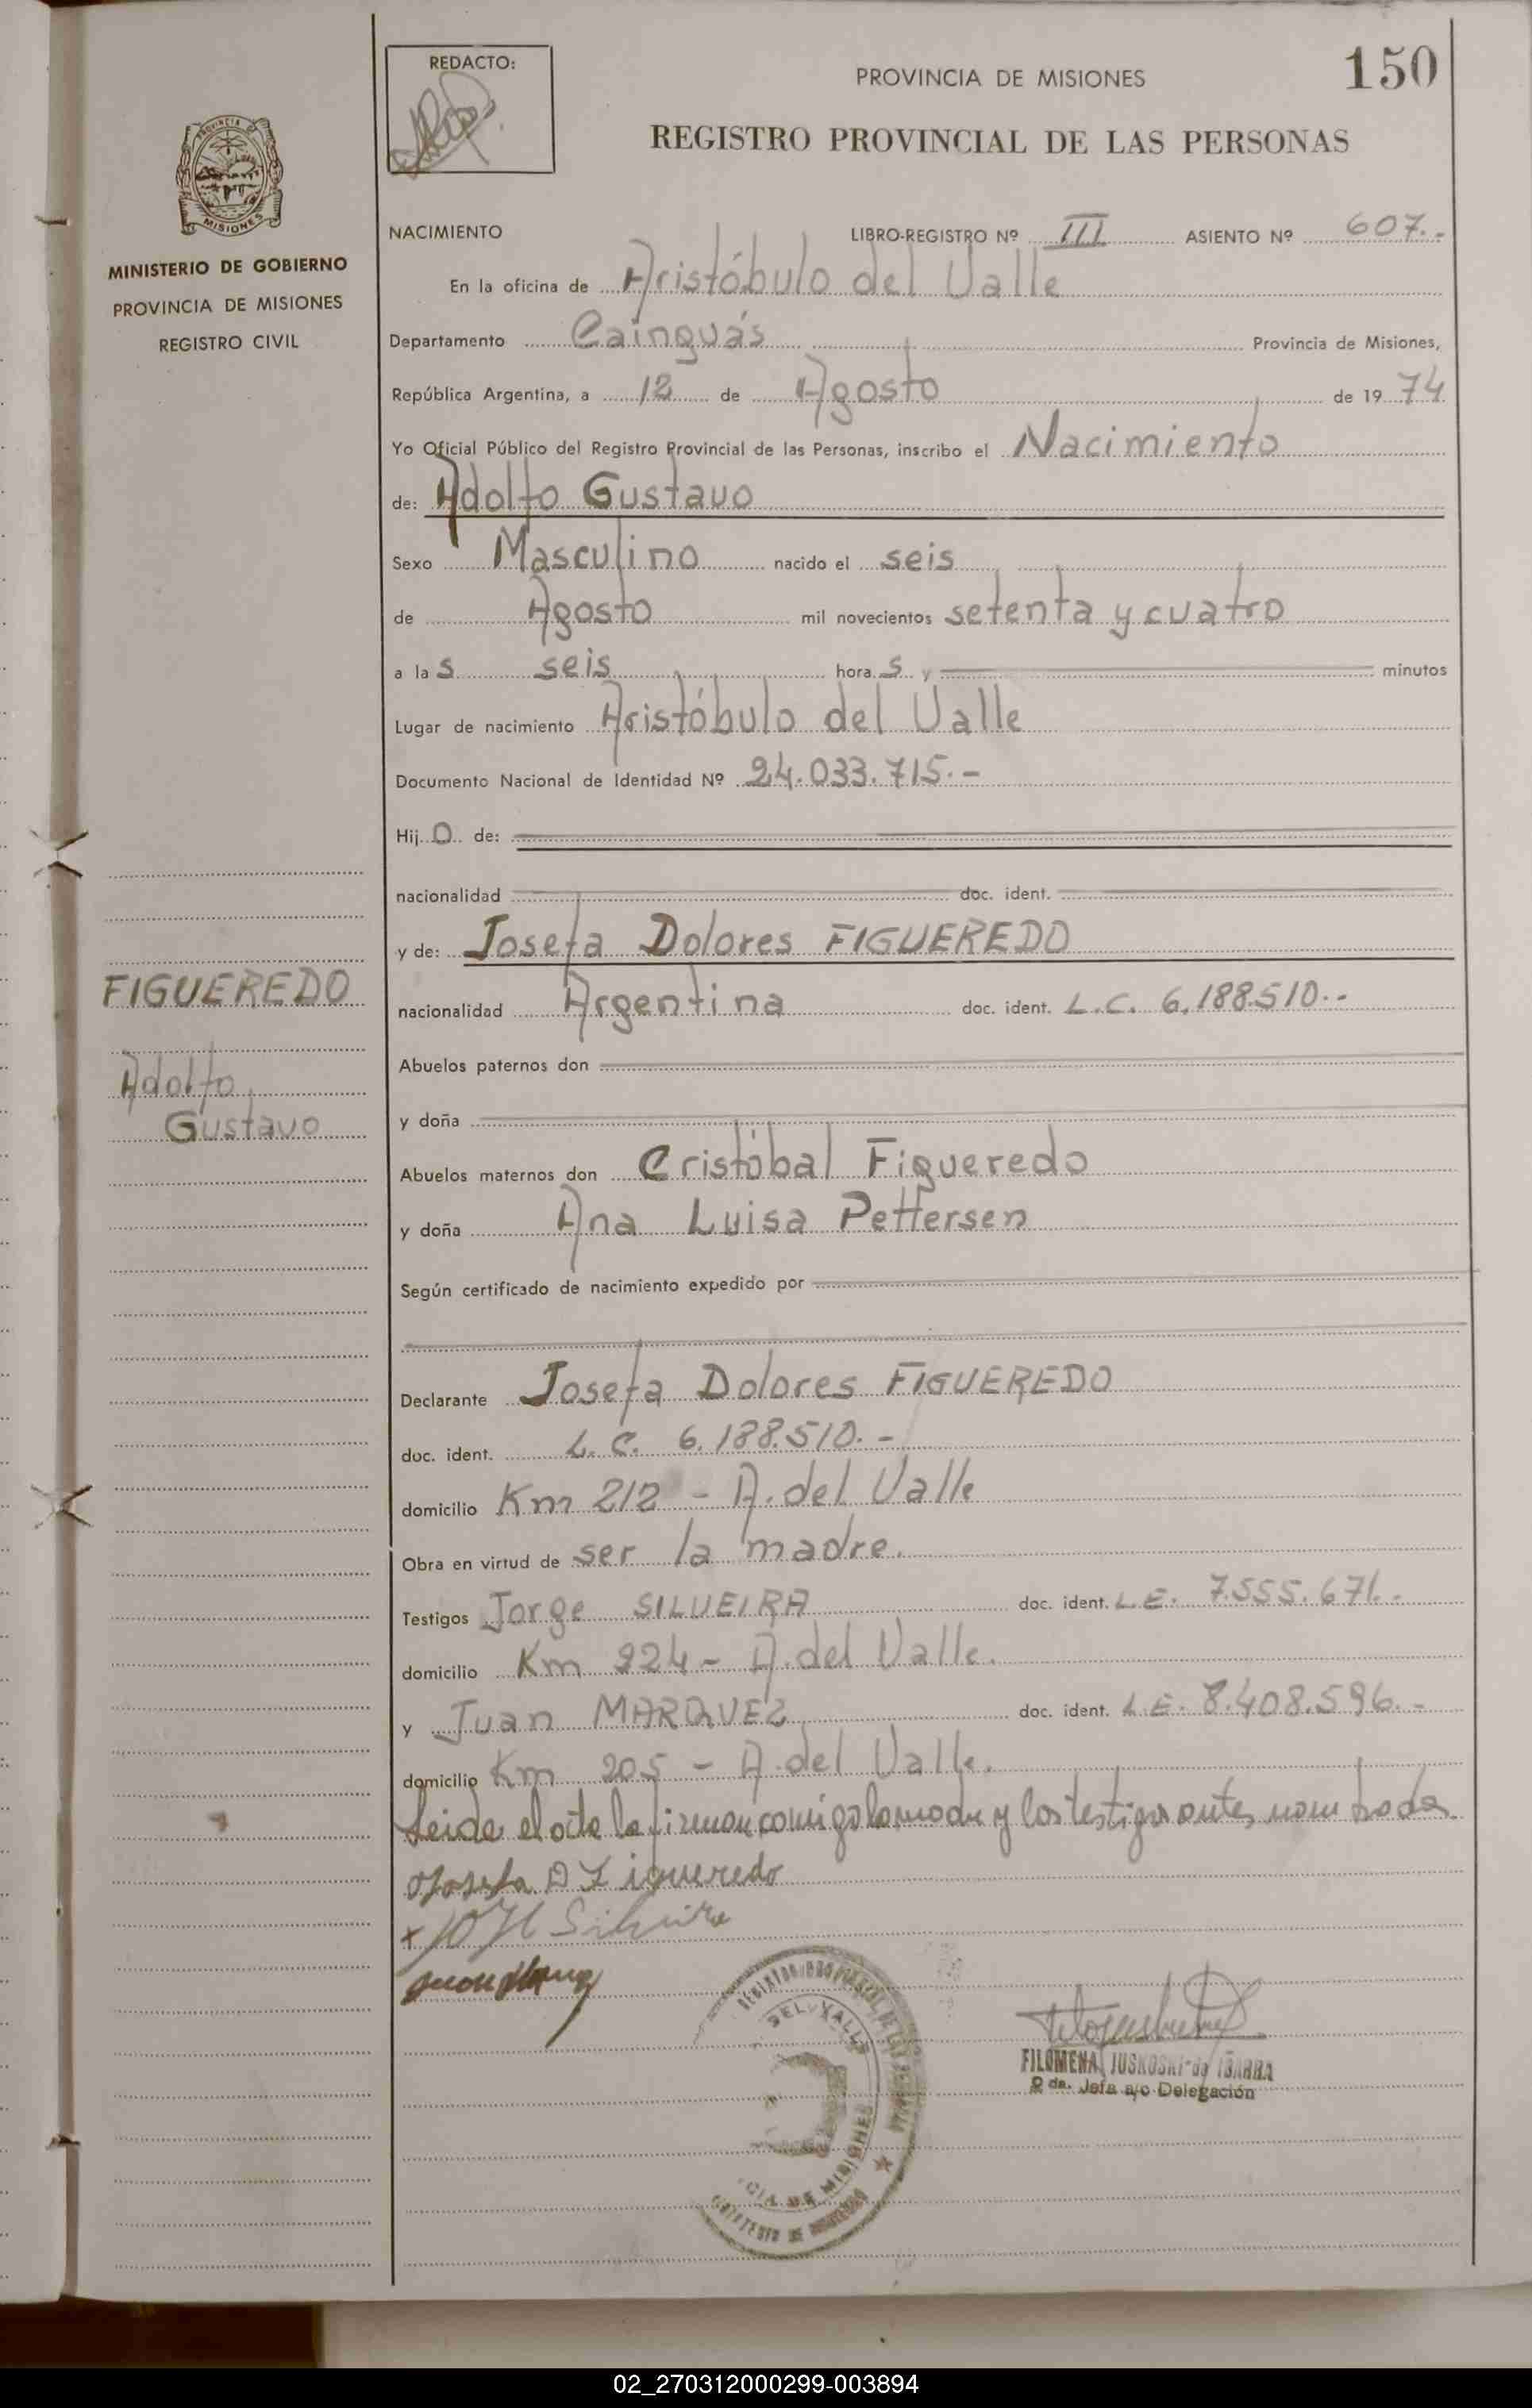 REDACTO:
PROVINCIA DE MISIONES
150
REGISTRO PROVINCIAL DE LAS PERSONAS
PROVINCIA DE
MISIONES
MINISTERIO DE GOBIERNO
PROVINCIA DE MISIONES
REGISTRO CIVIL
NACIMIENTO LIBRO-REGISTRO Nº III ASIENTO Nº 607.-
En la oficina de Aristóbulo del Valle
Departamento Cainguás Provincia de Misiones,
República Argentina, a 12 de Agosto de 1974
Yo Oficial Público del Registro Provincial de las Personas, inscribo el Nacimiento
de: Adolfo Gustavo
Sexo Masculino nacido el seis
de Agosto mil novecientos setenta y cuatro
a las seis horas y minutos
Lugar de nacimiento Aristóbulo del Valle
Documento Nacional de Identidad Nº 24.033.715.-
Hijo de:
nacionalidad doc. ident.
y de: Josefa Dolores FIGUEREDO
FIGUEREDO
Adolfo
Gustavo
nacionalidad Argentina doc. ident. L.C. 6.188.510.-
Abuelos paternos don
y doña
Abuelos maternos don Cristóbal Figueredo
y doña Ana Luisa Pettersen
Según certificado de nacimiento expedido por
Declarante Josefa Dolores FIGUEREDO
doc. ident. L.C. 6.188.510.-
domicilio Km 212 - A. del Valle
Obra en virtud de ser la madre.
Testigos Jorge SILVEIRA doc. ident. L.E. 7.555.671.-
domicilio Km 224 - A. del Valle.
y Juan MARQUEZ doc. ident. L.E. 8.408.596.-
domicilio Km 205 - A. del Valle.
Leida el acta la firman conmigo la madre y los testigos antes nombrados
Josefa D Figueredo
Silveira
DEL VALLE
CIA DE MISIONES
FILOMENA JUSKOSKI de IBARRA
2 da. Jefa a/c Delegación
02_270312000299-003894